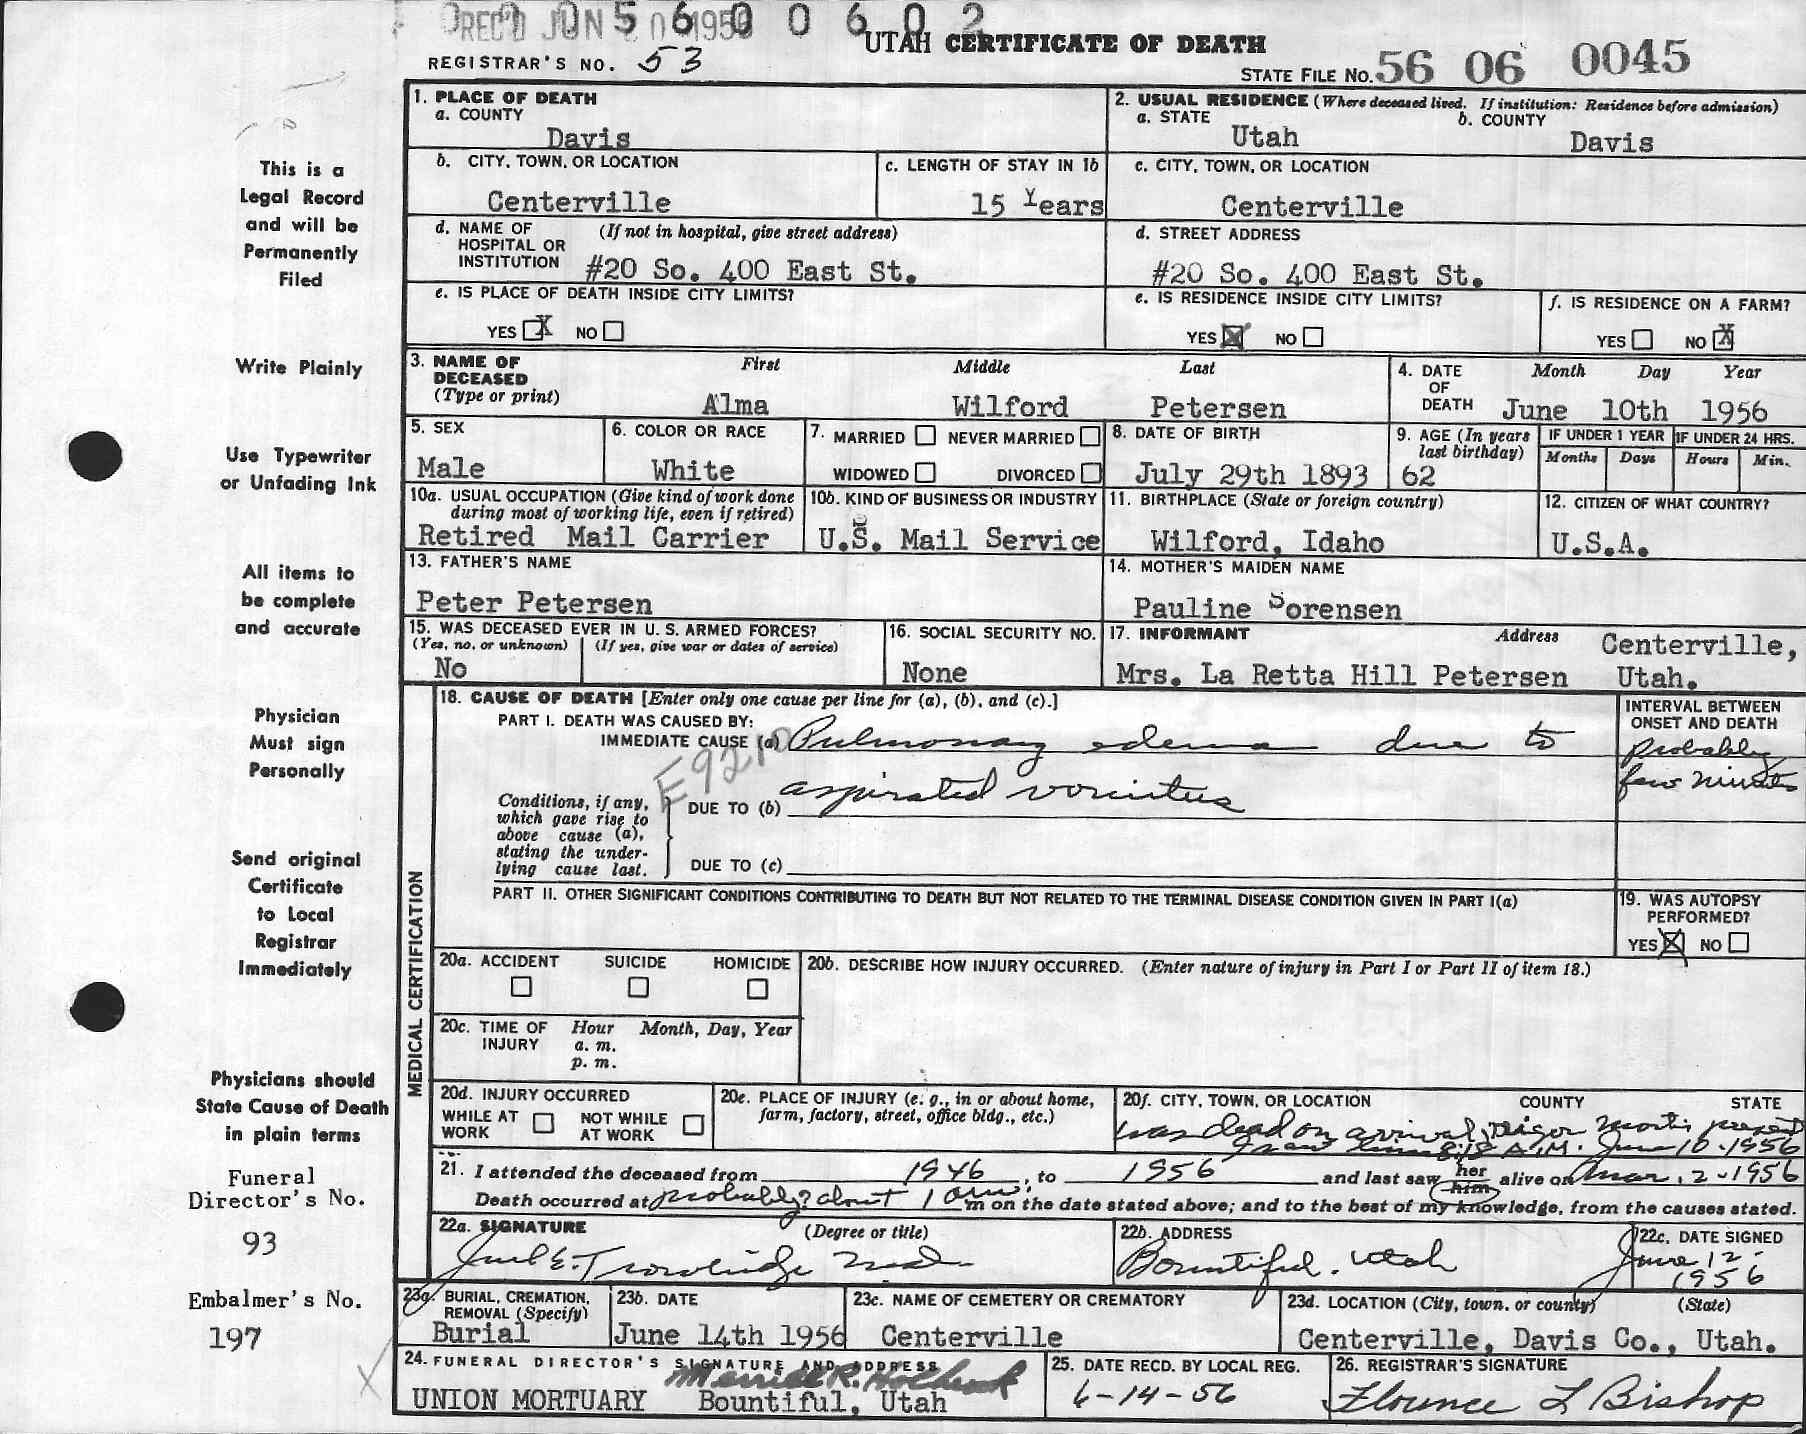 REC'D JUN 1956
5 6 0 0 6 0 2
UTAH CERTIFICATE OF DEATH
REGISTRAR'S NO. 53
STATE FILE NO. 56 06 0045
1. PLACE OF DEATH
a. COUNTY
Davis
2. USUAL RESIDENCE (Where deceased lived. If institution: Residence before admission)
a. STATE b. COUNTY
Utah Davis
b. CITY, TOWN, OR LOCATION
Centerville
c. LENGTH OF STAY IN 1b
15 Years
c. CITY, TOWN, OR LOCATION
Centerville
d. NAME OF HOSPITAL OR INSTITUTION (If not in hospital, give street address)
#20 So. 400 East St.
d. STREET ADDRESS
#20 So. 400 East St.
e. IS PLACE OF DEATH INSIDE CITY LIMITS?
YES X NO
e. IS RESIDENCE INSIDE CITY LIMITS?
YES X NO
f. IS RESIDENCE ON A FARM?
YES NO X
3. NAME OF DECEASED (Type or print)
First Middle Last
Alma Wilford Petersen
4. DATE OF DEATH
Month Day Year
June 10th 1956
5. SEX
Male
6. COLOR OR RACE
White
7. MARRIED NEVER MARRIED
WIDOWED DIVORCED
8. DATE OF BIRTH
July 29th 1893
9. AGE (In years last birthday)
62
IF UNDER 1 YEAR
Months Days
IF UNDER 24 HRS.
Hours Min.
10a. USUAL OCCUPATION (Give kind of work done during most of working life, even if retired)
Retired Mail Carrier
10b. KIND OF BUSINESS OR INDUSTRY
U.S. Mail Service
11. BIRTHPLACE (State or foreign country)
Wilford, Idaho
12. CITIZEN OF WHAT COUNTRY?
U.S.A.
13. FATHER'S NAME
Peter Petersen
14. MOTHER'S MAIDEN NAME
Pauline Sorensen
15. WAS DECEASED EVER IN U. S. ARMED FORCES?
(Yes, no, or unknown) (If yes, give war or dates of service)
No
16. SOCIAL SECURITY NO.
None
17. INFORMANT Address
Mrs. La Retta Hill Petersen Centerville, Utah.
MEDICAL CERTIFICATION
18. CAUSE OF DEATH [Enter only one cause per line for (a), (b), and (c).]
PART I. DEATH WAS CAUSED BY:
IMMEDIATE CAUSE (a) Pulmonary edema due to
Conditions, if any, which gave rise to above cause (a), stating the underlying cause last.
DUE TO (b) aspirated vomitus
DUE TO (c)
INTERVAL BETWEEN ONSET AND DEATH
probably
few minutes
PART II. OTHER SIGNIFICANT CONDITIONS CONTRIBUTING TO DEATH BUT NOT RELATED TO THE TERMINAL DISEASE CONDITION GIVEN IN PART I(a)
19. WAS AUTOPSY PERFORMED?
YES X NO
20a. ACCIDENT SUICIDE HOMICIDE
20b. DESCRIBE HOW INJURY OCCURRED. (Enter nature of injury in Part I or Part II of item 18.)
20c. TIME OF INJURY Hour Month, Day, Year
a. m.
p. m.
20d. INJURY OCCURRED
WHILE AT WORK NOT WHILE AT WORK
20e. PLACE OF INJURY (e. g., in or about home, farm, factory, street, office bldg., etc.)
20f. CITY, TOWN, OR LOCATION COUNTY STATE
was dead on arrival, Rigor mortis present
A.M. June 10-1956
21. I attended the deceased from 1946, to 1956 and last saw her him alive on Mar. 2-1956
Death occurred at probably? about 1 am m on the date stated above; and to the best of my knowledge, from the causes stated.
22a. SIGNATURE (Degree or title)
Trowbridge M.D.
22b. ADDRESS
Bountiful, Utah
22c. DATE SIGNED
June 12-1956
23a. BURIAL, CREMATION, REMOVAL (Specify)
Burial
23b. DATE
June 14th 1956
23c. NAME OF CEMETERY OR CREMATORY
Centerville
23d. LOCATION (City, town, or county) (State)
Centerville, Davis Co., Utah.
24. FUNERAL DIRECTOR'S SIGNATURE AND ADDRESS
Merrill R. Holbrook
UNION MORTUARY Bountiful, Utah
25. DATE RECD. BY LOCAL REG.
6-14-56
26. REGISTRAR'S SIGNATURE
Florence L Bishop
This is a
Legal Record
and will be
Permanently
Filed
Write Plainly
Use Typewriter
or Unfading Ink
All items to
be complete
and accurate
Physician
Must sign
Personally
Send original
Certificate
to Local
Registrar
Immediately
Physicians should
State Cause of Death
in plain terms
Funeral
Director's No.
93
Embalmer's No.
197